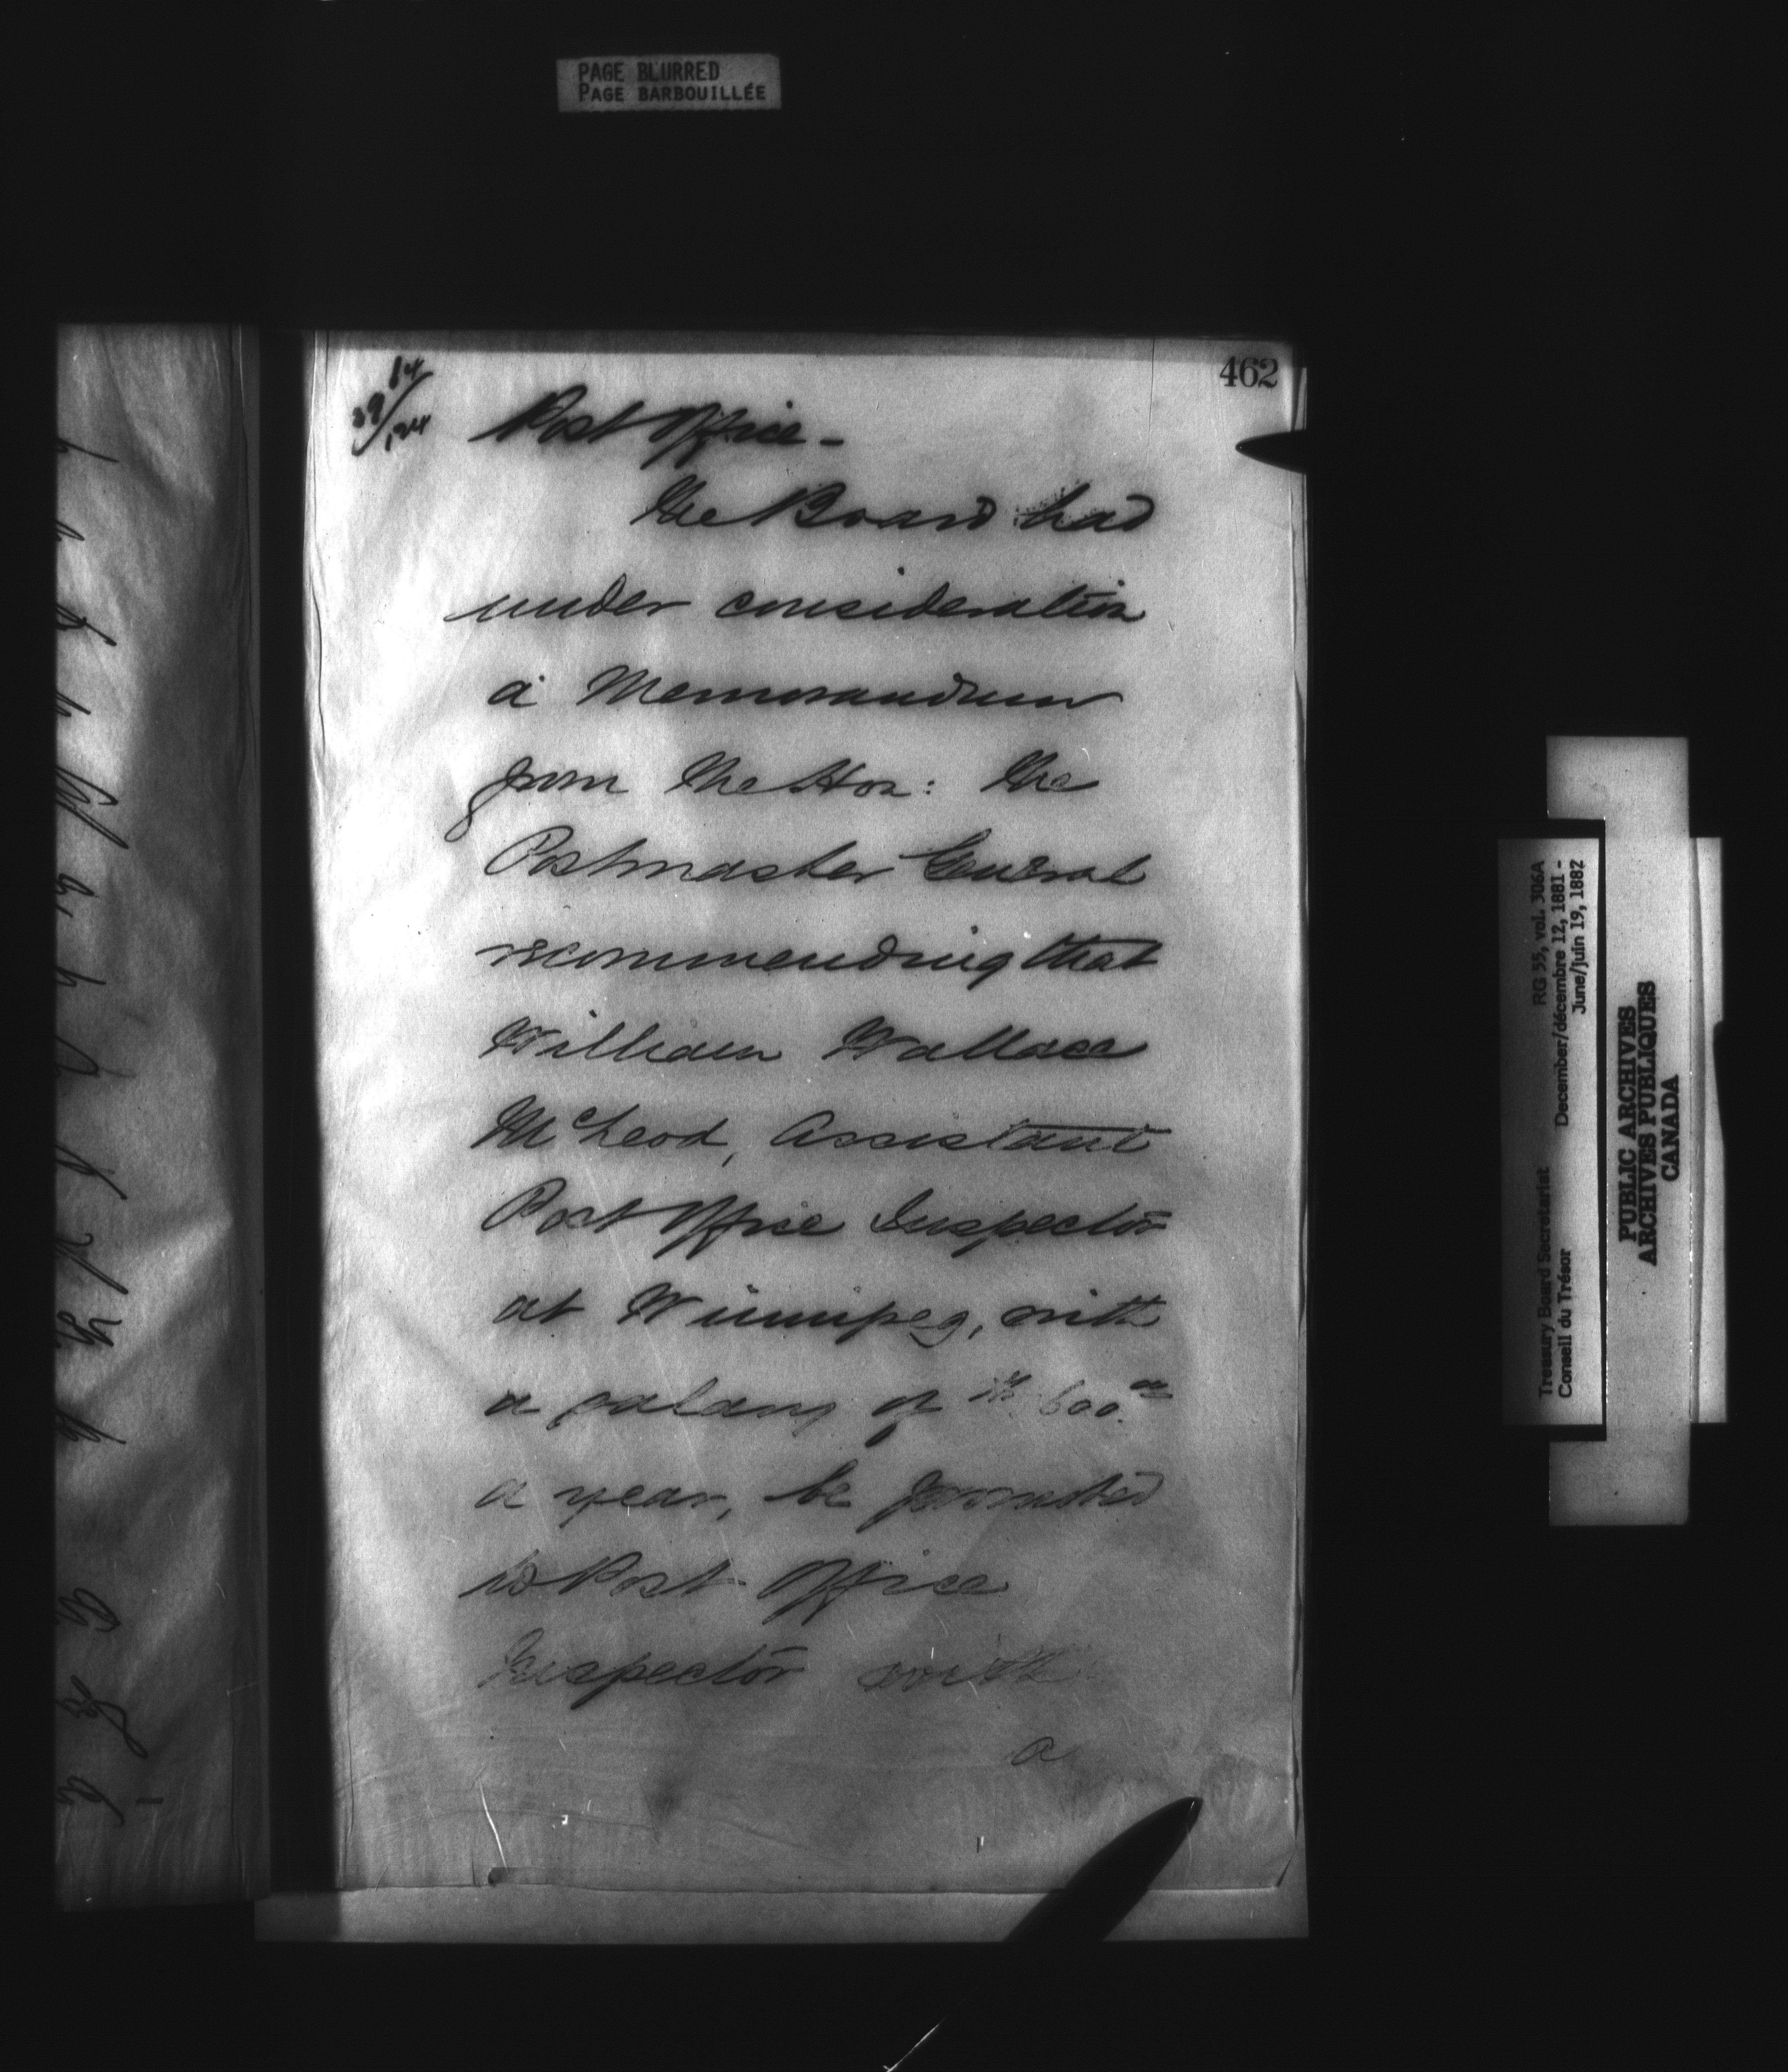 PAGE BLURRED
PAGE BARBOUILLÉE
462
14
Post Office -
The Board had
under consideration
a Memorandum
from the Hon: the
Postmaster General
recommending that
William Wallace
McLeod, Assistant
Post Office Inspector
at Winnipeg, with
a salary of 600.
a year, be promoted
to Post Office
Inspector with
a
Treasury Board Secretariat RG 55, vol. 306A
Conseil du Trésor December/décembre 12, 1881 -
June/juin 19, 1882
PUBLIC ARCHIVES
ARCHIVES PUBLIQUES
CANADA